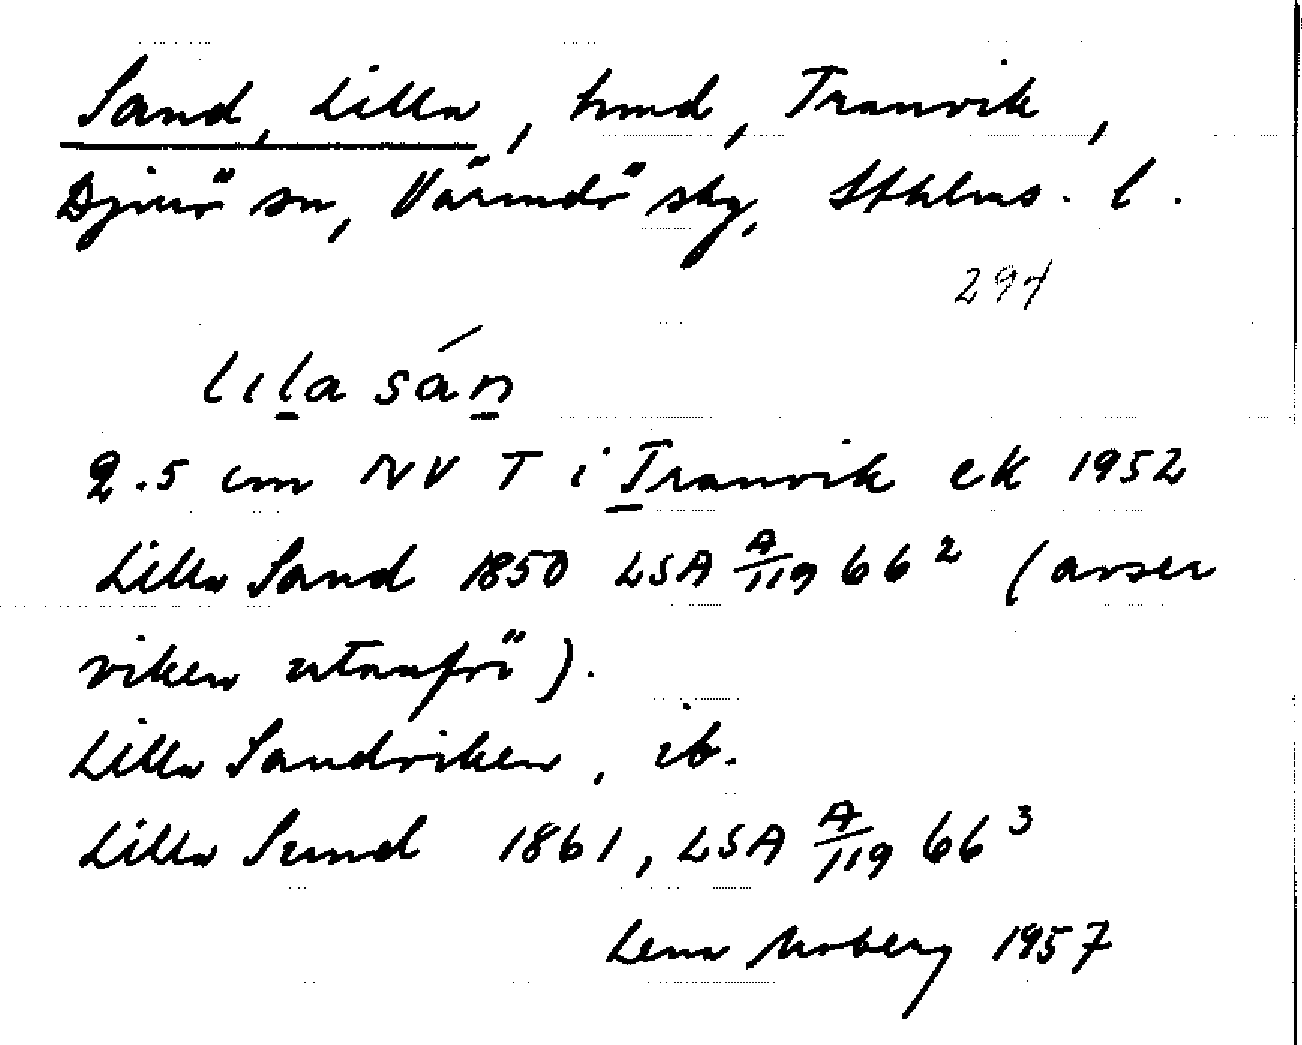 Sand, Lilla, hmd, Tranvik,
Djurö sn, Värmdö skg, Sthlms. l.
294
lıla sán
2.5 cm NV T i Tranvik ek 1952
Lilla Sand 1850 LSA A/119 66² (avser
viken utanför).
Lilla Sandviken, ib.
Lilla Sund 1861, LSA A/119 66³
Lena Moberg 1957